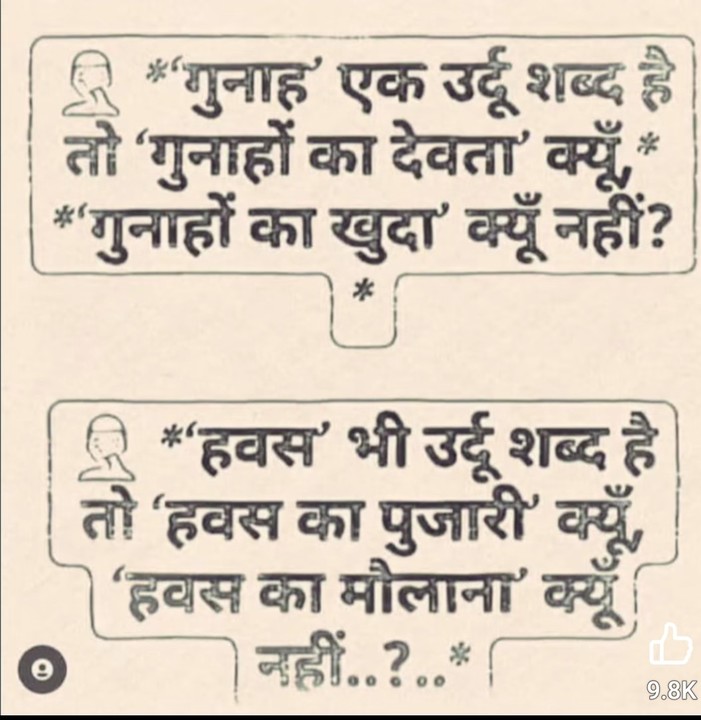 *‘गुनाह’ एक उर्दू शब्द है
तो ‘गुनाहों का देवता’ क्यूँ,*
*‘गुनाहों का खुदा’ क्यूँ नहीं?
*
*‘हवस’ भी उर्दू शब्द है
तो ‘हवस का पुजारी’ क्यूँ,
‘हवस का मौलाना’ क्यूँ
नहीं..?..*
9.8K